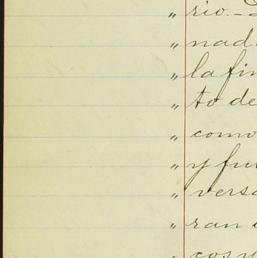 „ rio.-
„ nad
„ la fin
„ to de
„ como
„ y fu
„ vers
„ ran
„ cos y